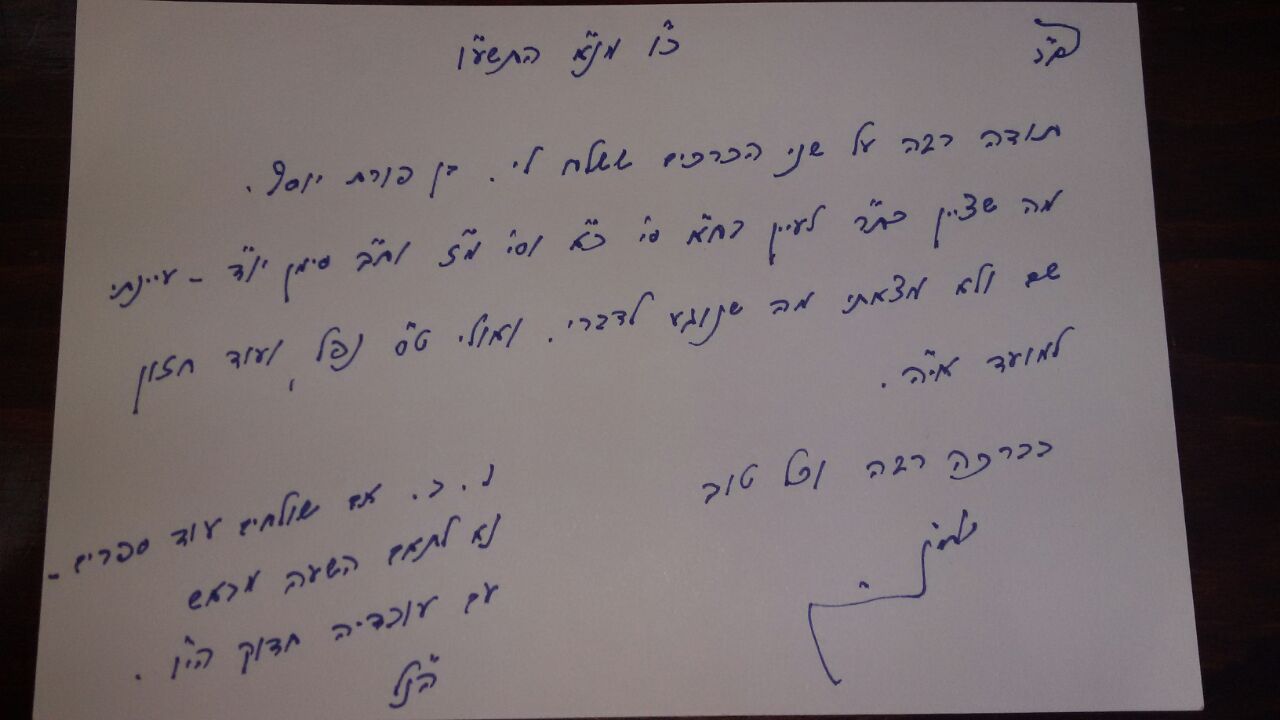 בס"ד כ"ו מנ"א התשע"ו
תודה רבה על שני הכרכים ששלח לי. בן פורת יוסף.
מה שציין כת"ר לעיין בח"א סי' כ"א וסי' מ"ז וח"ב סימן יו"ד - עיינתי
שם ולא מצאתי מה שנוגע לדברי. ואולי ט"ס נפל, ועוד חזון
למועד אי"ה.
בברכה רבה וכל טוב
נ.ב. אם שולחים עוד ספרים -
נא לתאם השעה מראש
עם עובדיה חדוק הי"ו.
הנ"ל